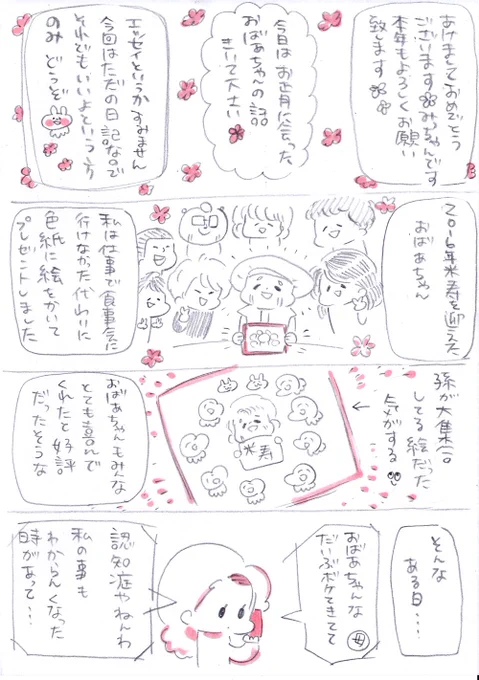 あけましておめでとう
ございます みちゃんです
本年もよろしくお願い
致します
今日はお正月に会った
おばあちゃんの話
きいて下さい
エッセイというかすみません
今回はただの日記なので
それでもいいよという方
のみ どうぞ
2016年米寿を迎えた
おばあちゃん
私は仕事で食事会に
行けなかった代わりに
色紙に絵をかいて
プレゼントしました
孫が大集合
してる絵だった
気がする
←
米寿
おばあちゃんもみんな
とても喜んで
くれたと好評
だったそうな
そんな
ある日…
おばあちゃんな
だいぶボケてきてて
母
認知症やねんわ
私の事も
わからんくなった
時があって…